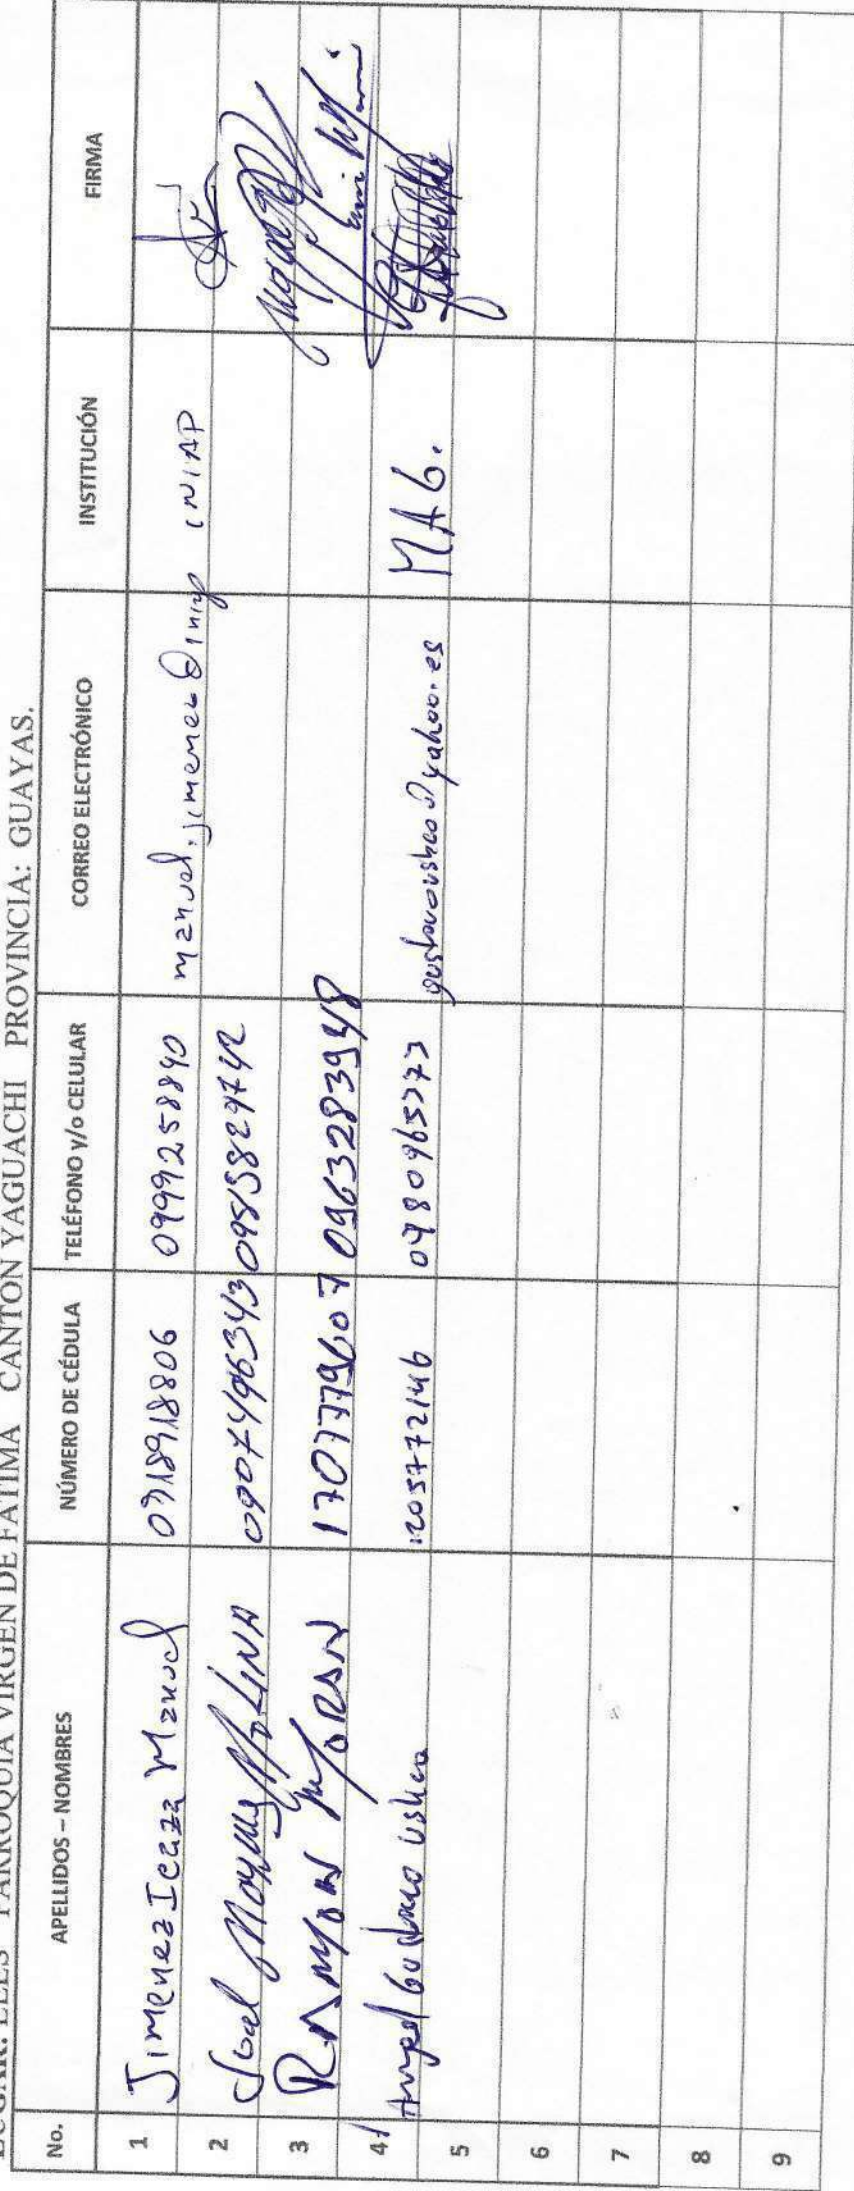 LUGAR: EELS PARROQUIA VIRGEN DE FATIMA CANTON YAGUACHI PROVINCIA: GUAYAS.
No. APELLIDOS – NOMBRES NÚMERO DE CÉDULA TELÉFONO y/o CELULAR CORREO ELECTRÓNICO INSTITUCIÓN FIRMA
1 Jimenez Icaza Manuel 0918918806 0999258890 manuel.jimenez@iniap INIAP
2 MOLINA
3 RAMON MORAN 1707779607 0963283948
4 Angel Gustavo Ushca 1205772146 gustavoushca@yahoo.es MAG.
5
6
7
8
9